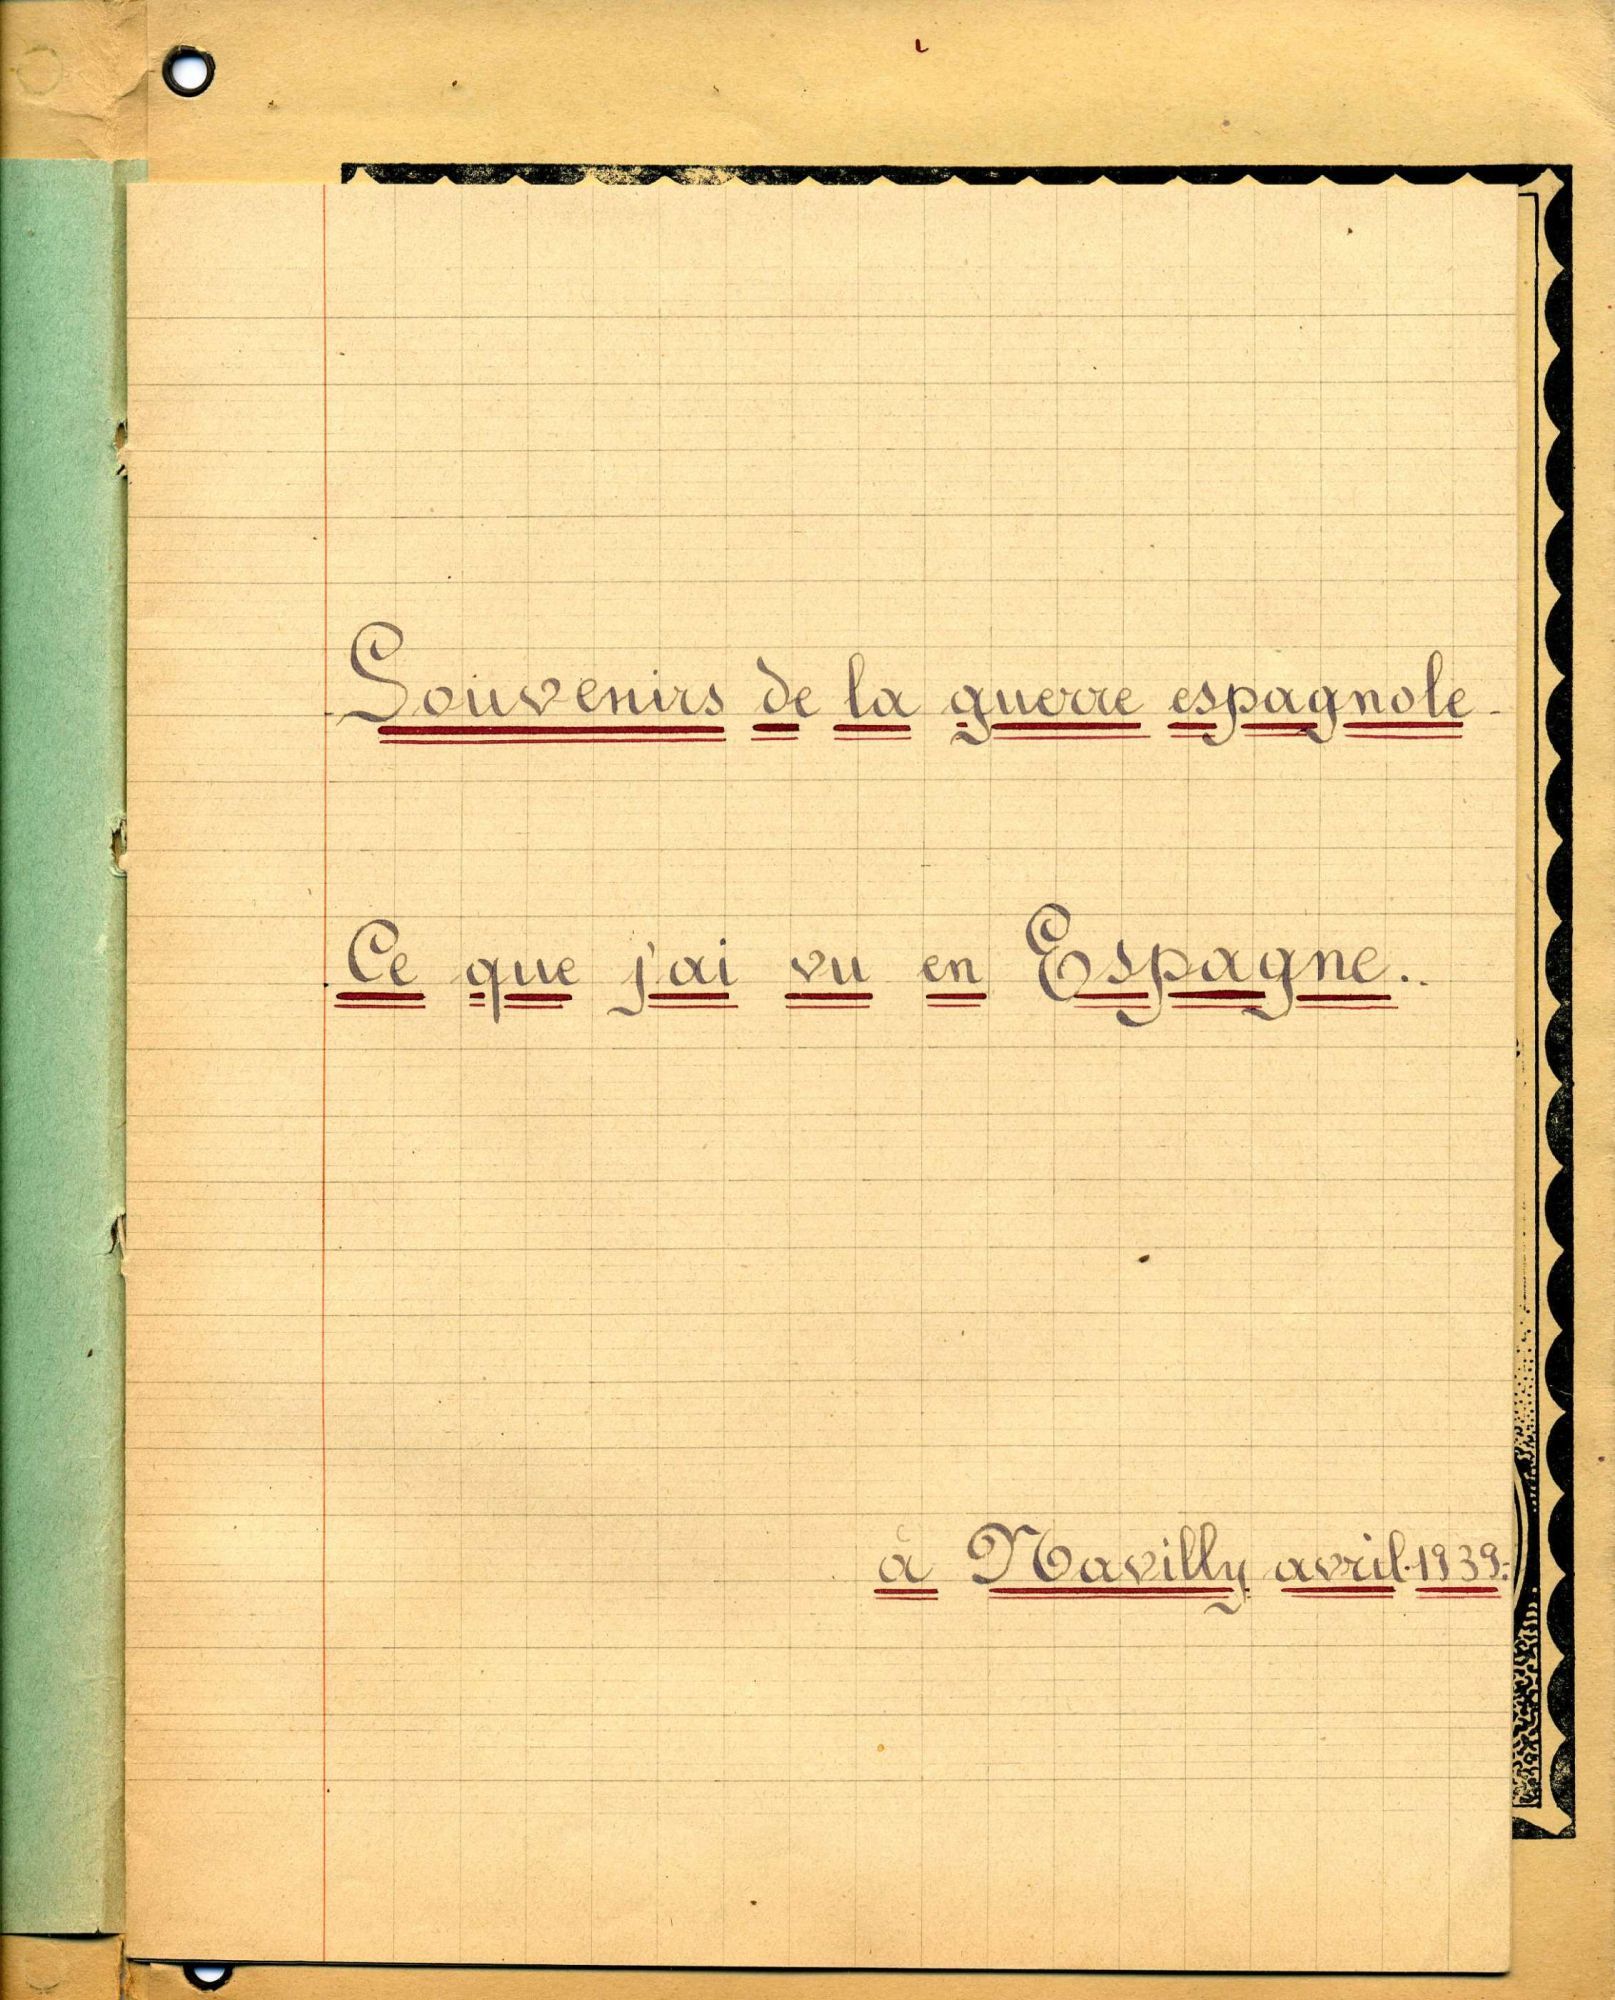 Souvenirs de la guerre espagnole.
Ce que j'ai vu en Espagne.
à Navilly avril 1939.